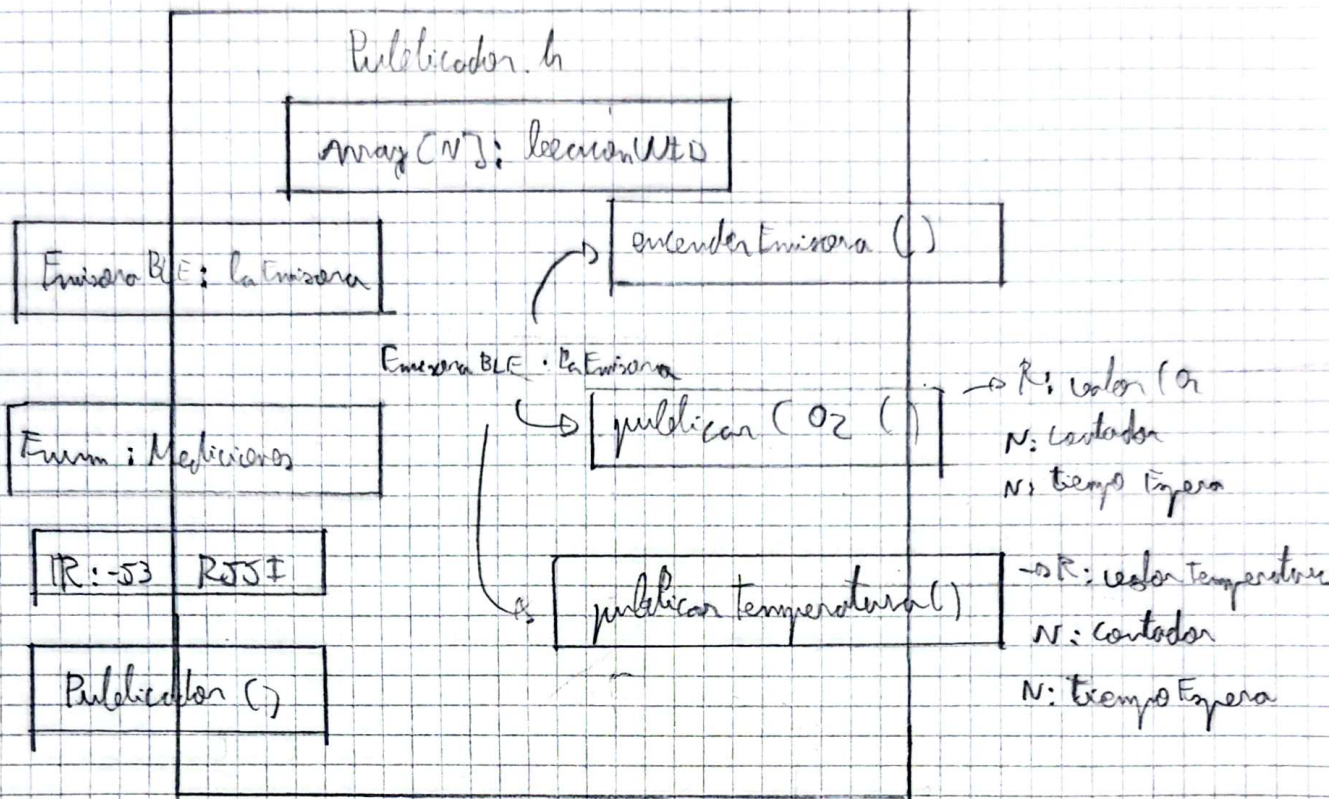 Publicador.h
Array [N]: beaconUUID
encenderEmisora ()
EmisoraBLE: laEmisora
EmisoraBLE. laEmisora
publicar CO2 ()
→ R: valor CO2
N: contador
N: tiempo Espera
Enum: Mediciones
R: -53 RSSI
publicar temperatura()
→ R: valor Temperatura
N: contador
N: tiempo Espera
Publicador ()